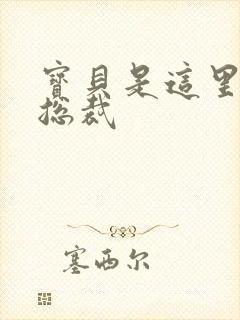 寶貝是這里
总裁
塞西尔